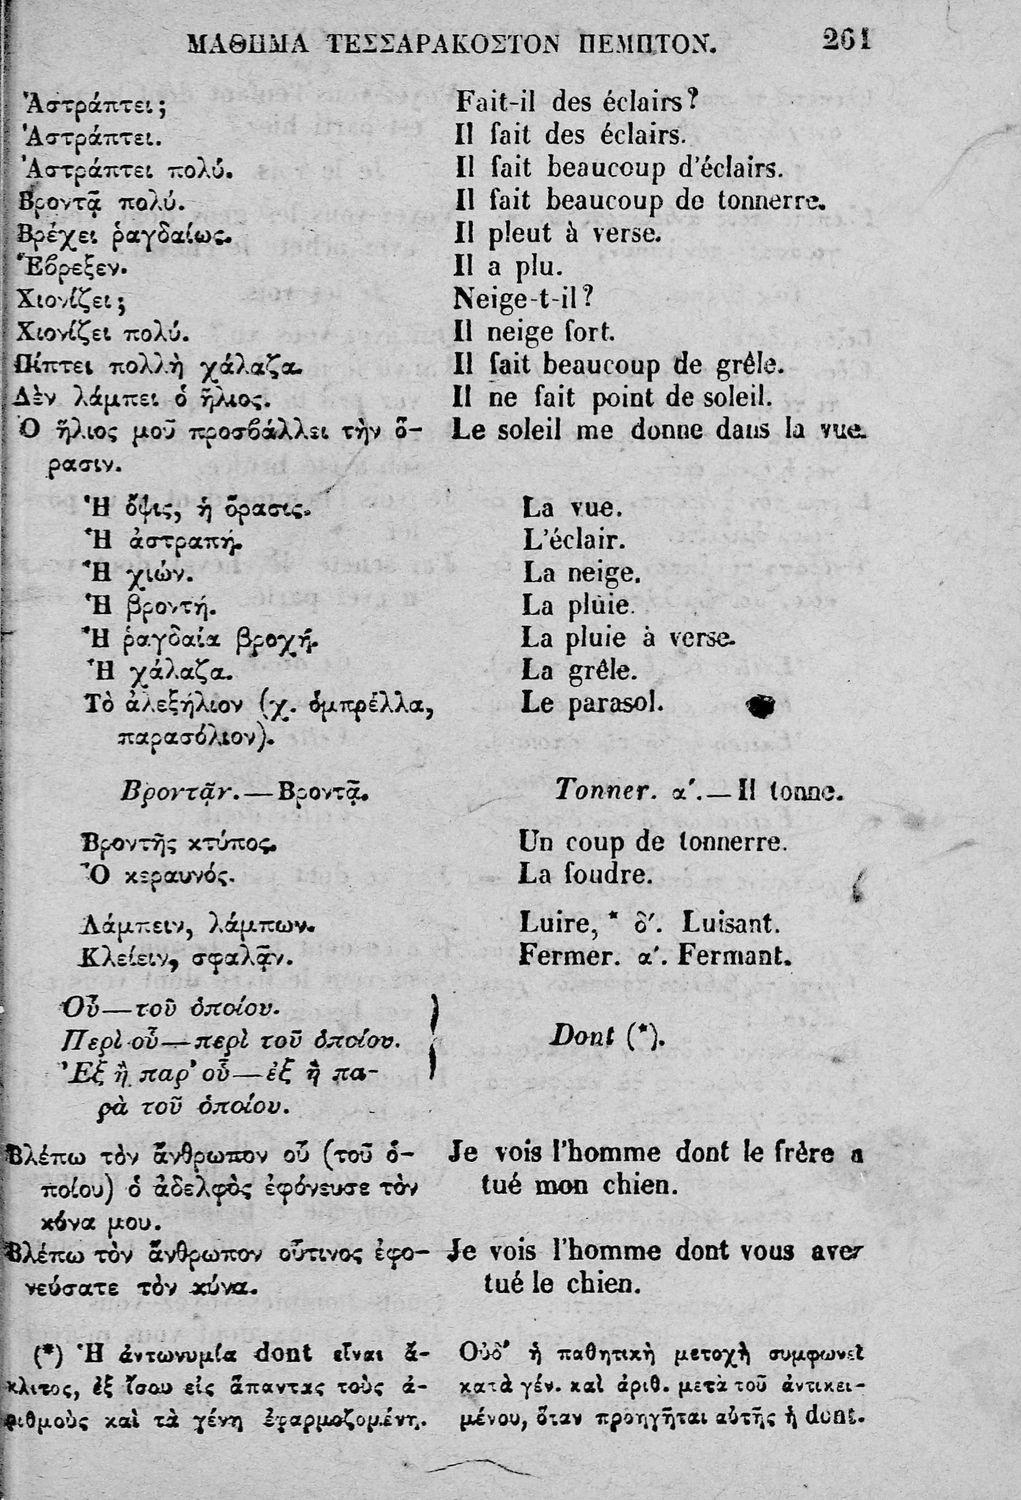 ΜΑΘΗΜΑ ΤΕΣΣΑΡΑΚΟΣΤΟΝ ΠΕΜΠΤΟΝ. 261
Ἀστράπτει; Fait-il des éclairs?
Ἀστράπτει. Il fait des éclairs.
Ἀστράπτει πολύ. Il fait beaucoup d'éclairs.
Βροντᾷ πολύ. Il fait beaucoup de tonnerre.
Βρέχει ῥαγδαίως. Il pleut à verse.
Ἔβρεξεν. Il a plu.
Χιονίζει; Neige-t-il?
Χιονίζει πολύ. Il neige fort.
Πίπτει πολλὴ χάλαζα. Il fait beaucoup de grêle.
Δὲν λάμπει ὁ ἥλιος. Il ne fait point de soleil.
Ὁ ἥλιος μοῦ προσβάλλει τὴν ὅ- Le soleil me donne dans la vue.
ρασιν.
Ἡ ὄψις, ἡ ὅρασις. La vue.
Ἡ ἀστραπή. L'éclair.
Ἡ χιών. La neige.
Ἡ βροντή. La pluie.
Ἡ ῥαγδαία βροχή. La pluie à verse.
Ἡ χάλαζα. La grêle.
Τὸ ἀλεξήλιον (χ. ὀμπρέλλα, Le parasol.
παρασόλιον).
Βροντᾷν.—Βροντᾷ. Tonner. α΄.—Il tonne.
Βροντῆς κτύπος. Un coup de tonnerre.
Ὁ κεραυνός. La foudre.
Λάμπειν, λάμπων. Luire, * δ΄. Luisant.
Κλείειν, σφαλᾷν. Fermer. α΄. Fermant.
Οὗ—τοῦ ὁποίου.
Περὶ οὗ—περὶ τοῦ ὁποίου. Dont (*).
Ἐξ ἢ παρ' οὗ—ἐξ ἢ πα-
ρὰ τοῦ ὁποίου.
Βλέπω τὸν ἄνθρωπον οὗ (τοῦ ὁ- Je vois l'homme dont le frère a
ποίου) ὁ ἀδελφὸς ἐφόνευσε τὸν tué mon chien.
κύνα μου.
Βλέπω τὸν ἄνθρωπον οὗτινος ἐφο- Je vois l'homme dont vous avez
νεύσατε τὸν κύνα. tué le chien.
(*) Ἡ ἀντωνυμία dont εἶναι ἄ-
κλιτος, ἐξ ἴσου εἰς ἅπαντας τοὺς ἀ-
ριθμοὺς καὶ τὰ γένη ἐφαρμοζομένη.
Οὐδ' ἡ παθητικὴ μετοχὴ συμφωνεῖ
κατὰ γέν. καὶ ἀριθ. μετὰ τοῦ ἀντικει-
μένου, ὅταν προηγῆται αὐτῆς ἡ dont.